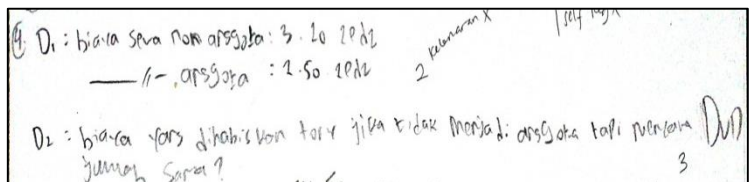 4. D1 : biaya sewa non anggota : 3.20 zedz
—— 11 – , anggota : 2.50 zedz
2 kebenaran x
D2 : biaya yang dihabiskan tory jika tidak menjadi anggota tapi menyewa DVD
jumlah sama?
3